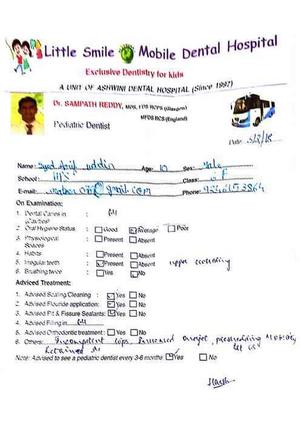 Little Smile Mobile Dental Hospital
Exclusive Dentistry for kids
A UNIT OF ASHWINI DENTAL HOSPITAL (Since 1997)
Dr. SAMPATH REDDY, MDS, FDS RCPS (Glasgow)
MFDS RCS (England)
Pediatric Dentist
Date:
Name: Syed uddin Age: 10 Sex: Male
School: Class:
E-mail: @gmail.com Phone:
On Examination:
1. Dental Caries in (Cavities) :
2. Oral Hygiene Status : Good Average Poor
3. Physiological Spaces : Present Absent
4. Habits : Present Absent
5. Irregular teeth : Present Absent upper crowding
6. Brushing twice : Yes No
Adviced Treatment:
1. Advised Scaling Cleaning : Yes No
2. Advised Flouride application: Yes No
3. Advised Pit & Fissure Sealants: Yes No
4. Advised Filling in
5. Advised Orthodontic treatment : Yes No
6. Others: Incompetent lips, Increased overjet,
Retained
Note: Advised to see a pediatric dentist every 3-6 months Yes No